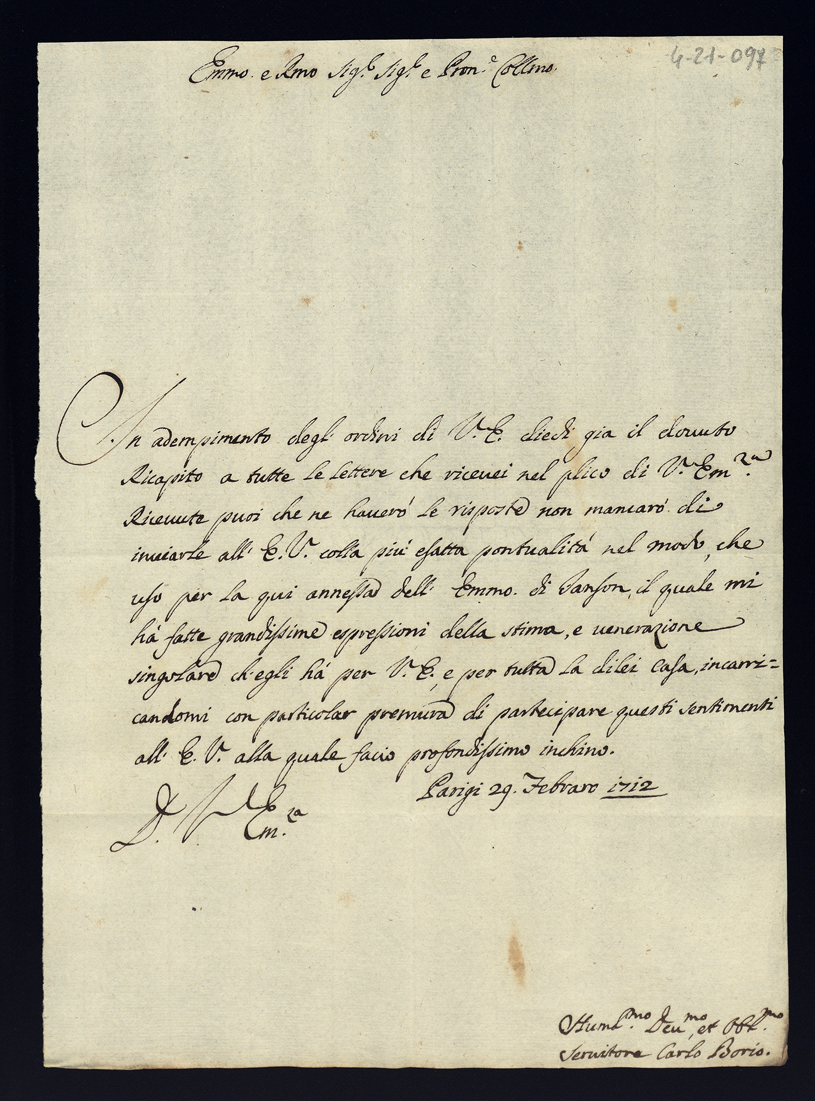 4-21-097
Emmo. e Rmo Sig.r Sig.r e Pron.e Collmo.
In adempimento degl' ordini di V. E. diedi gia il dovuto
Ricapito a tutte le lettere che ricevei nel plico di V. Em.za
Ricevute puoi che ne haveró le risposte non mancaró di
inviarle all' E. V. colla piú esatta pontualitá nel modo, che
uso per la qui annessa dell' Emmo. di Janson, il quale mi
há fatte grandissime espressioni della stima, e venerazione
singolare ch'egli há per V. E., e per tutta la dilei casa, incarri=
candomi con particolar premura di partecipare questi sentimenti
all' E. V. alla quale facio profondissimo inchino.
Parigi 29. Febraro 1712
D. V. Em.za
Huml.mo Dev.mo, et Obl.mo
Servitore Carlo Borio.